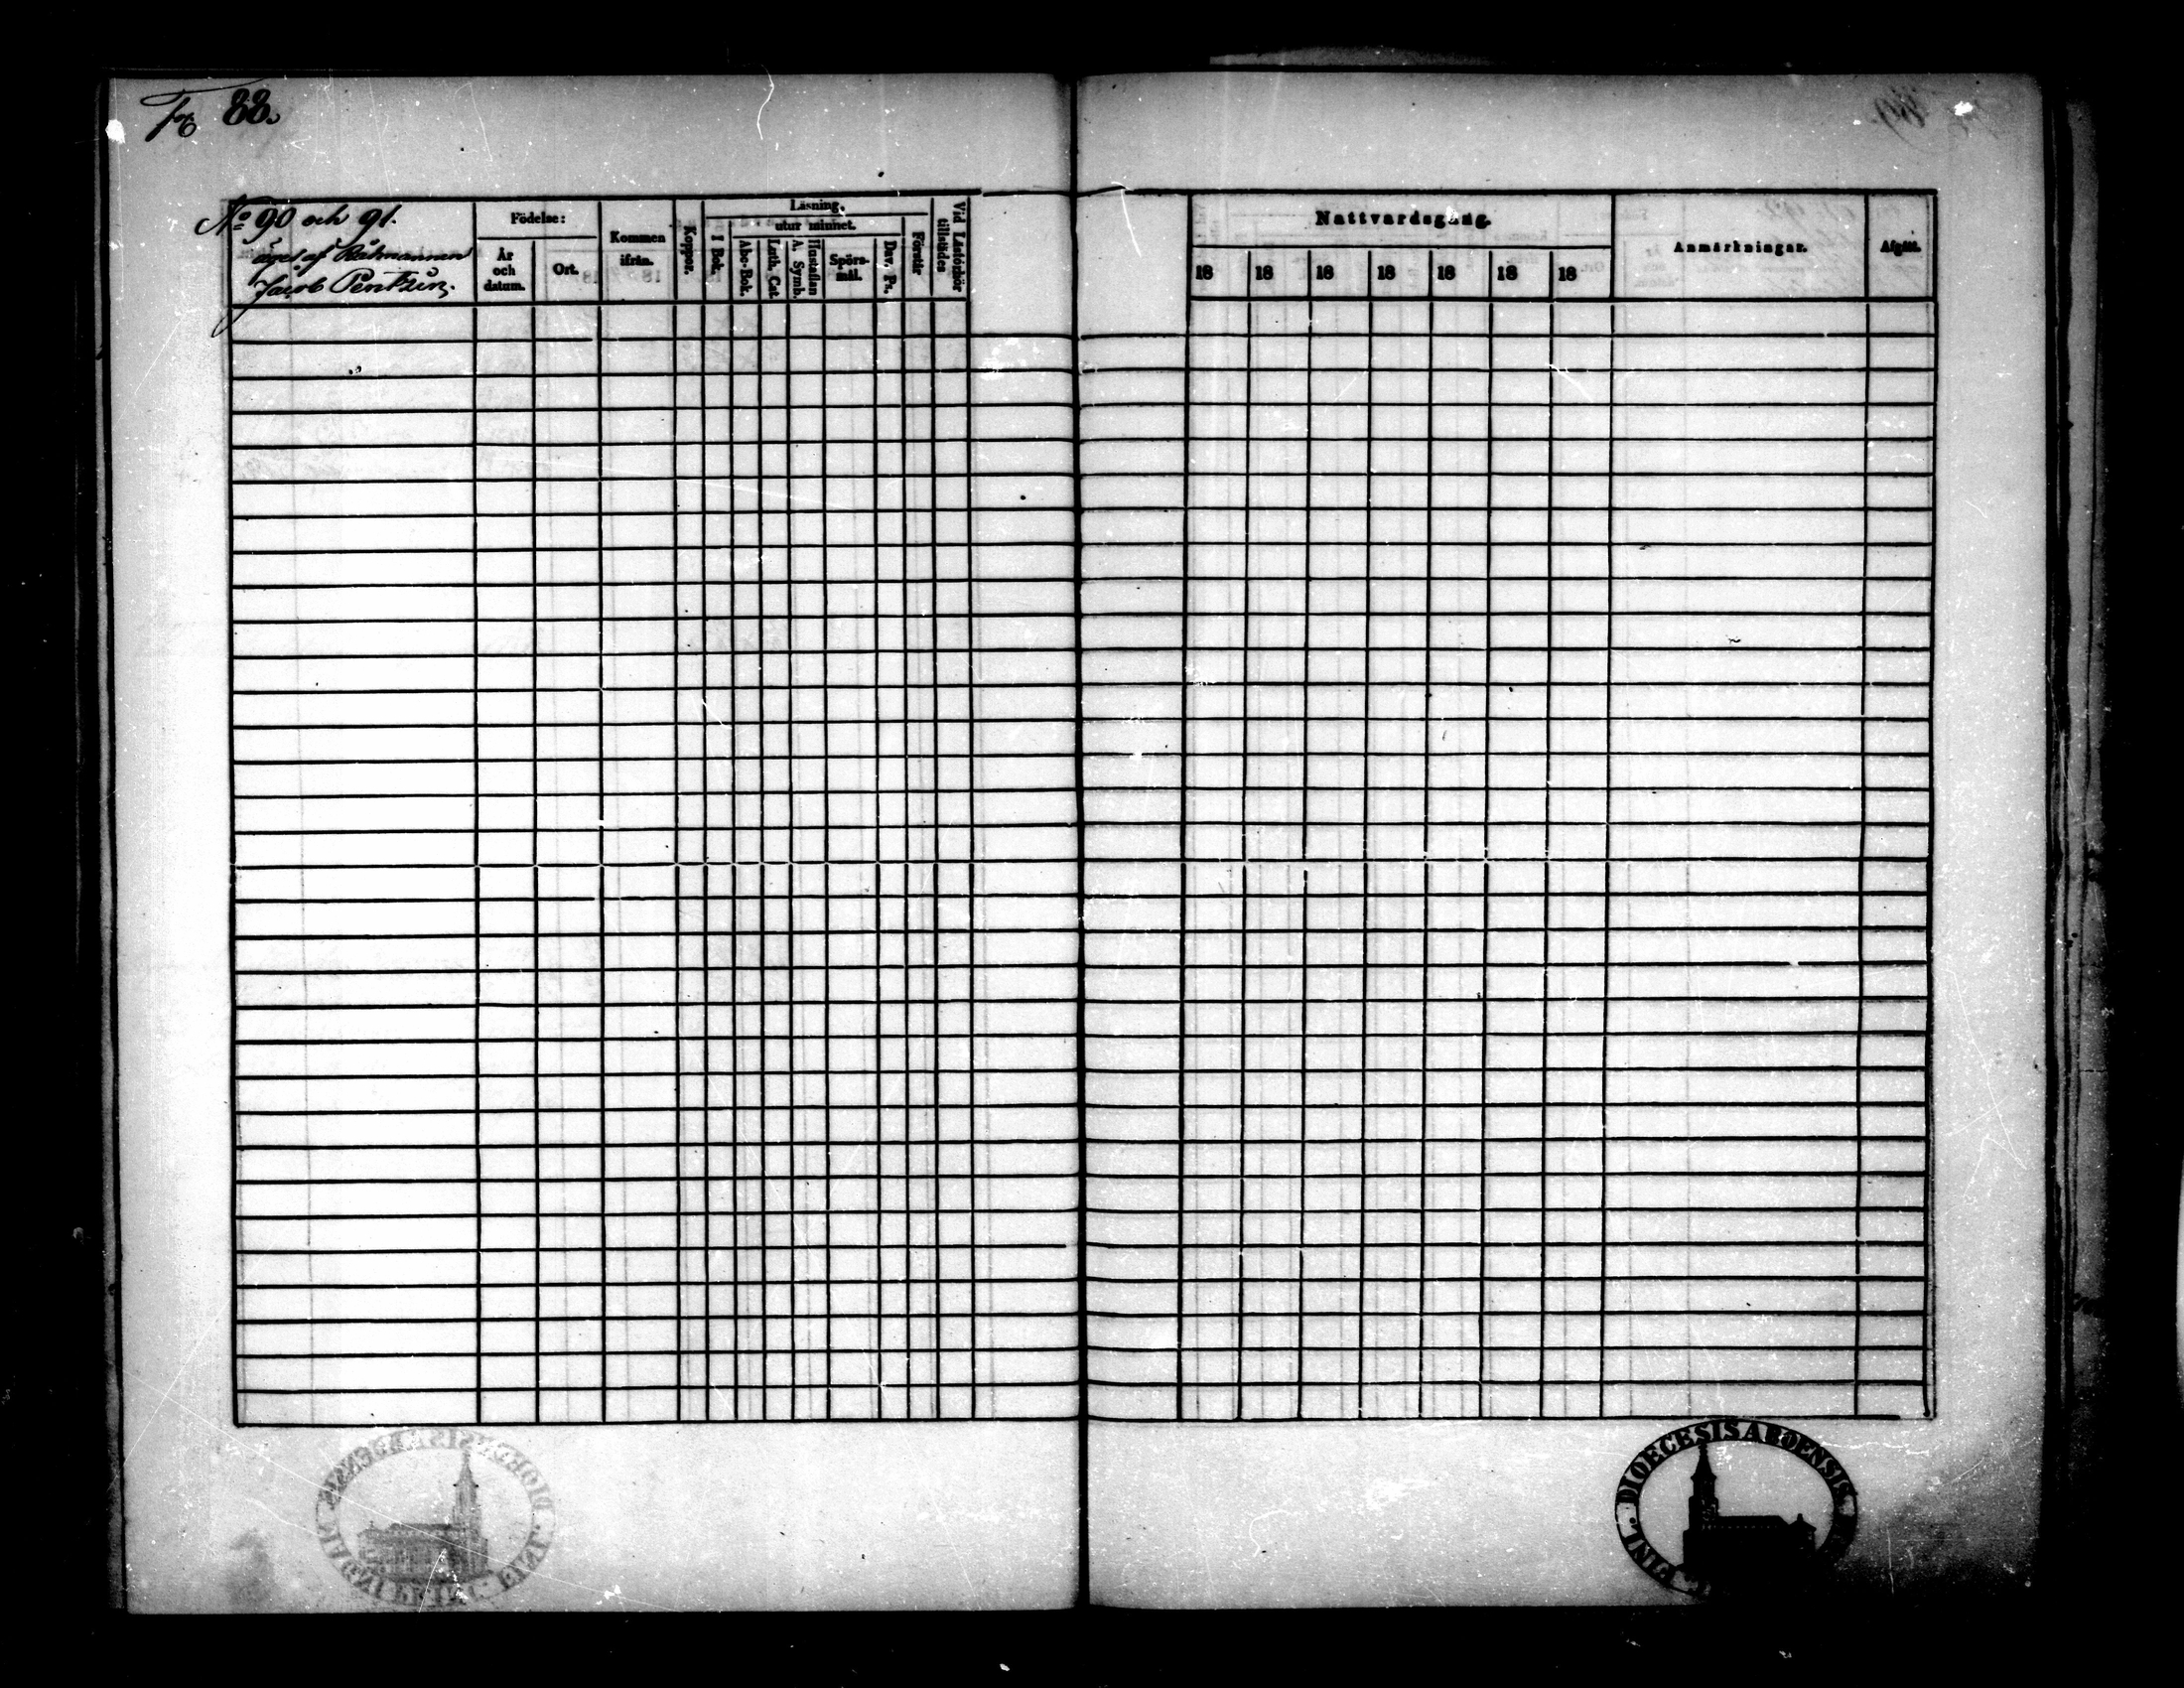 88.
No 90 och 91.
äges af Rådmannen
Jacob Pentzin.
Födelse:
År
och
datum.
Ort.
Kommen
ifrån.
Koppor.
Läsning.
I Bok.
utur minnet.
Abc-Bok.
Luth. Cat.
Hustaflan
A. Symb.
Spörs-
mål.
Dav. Ps.
Förstår
Vid Läsförhör
tillstädes
Nattvardsgång.
18 18 18 18 18 18 18
Anmärkningar.
Afgått.
FINL. DIOECESIS ABOENSIS